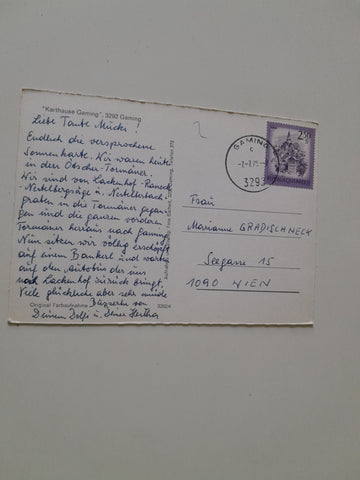 "Karthause Gaming", 3292 Gaming
Liebe Tante Mücki!
Endlich die versprochene
Sonnenkarte. Wir waren heute
in den Ötscher-Tormäuer.
Wir sind von Lackenhof-Raneck
-Nestelbergsäge u. Nestelberg-
graben in die Tormäuer gegan-
gen sind die ganzen vorderen
Tormäuer heraus nach Gaming
Nun sitzen wir völlig erschöpft
auf einem Bankerl und warten
auf den Autobus der uns
nach Lackenhof zurück bringt.
Viele glückliche aber sehr müde
Busserln von
Deinem Dolfi u. Deiner Hertha
Original Farbaufnahme 3292/4
GAMING
3293
2.50
Frau
Marianne GRADISCHNECK
Seegasse 15
1090 WIEN